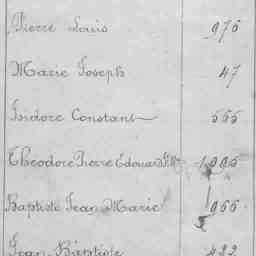 Pierre Louis 976
Marie Joseph 47
Isidore Constant 555
Théodore Pierre Edouard
Baptiste Jean Marie 966
Jean Baptiste 422